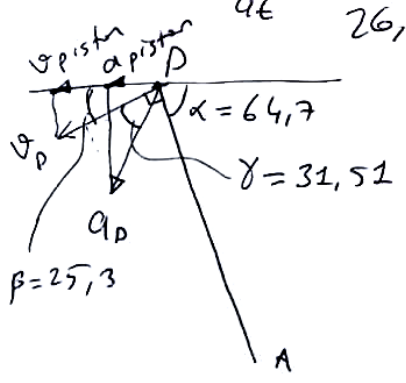 at
26,
v piston
a piston
D
α = 64,7
v D
γ = 31,51
a D
β = 25,3
A